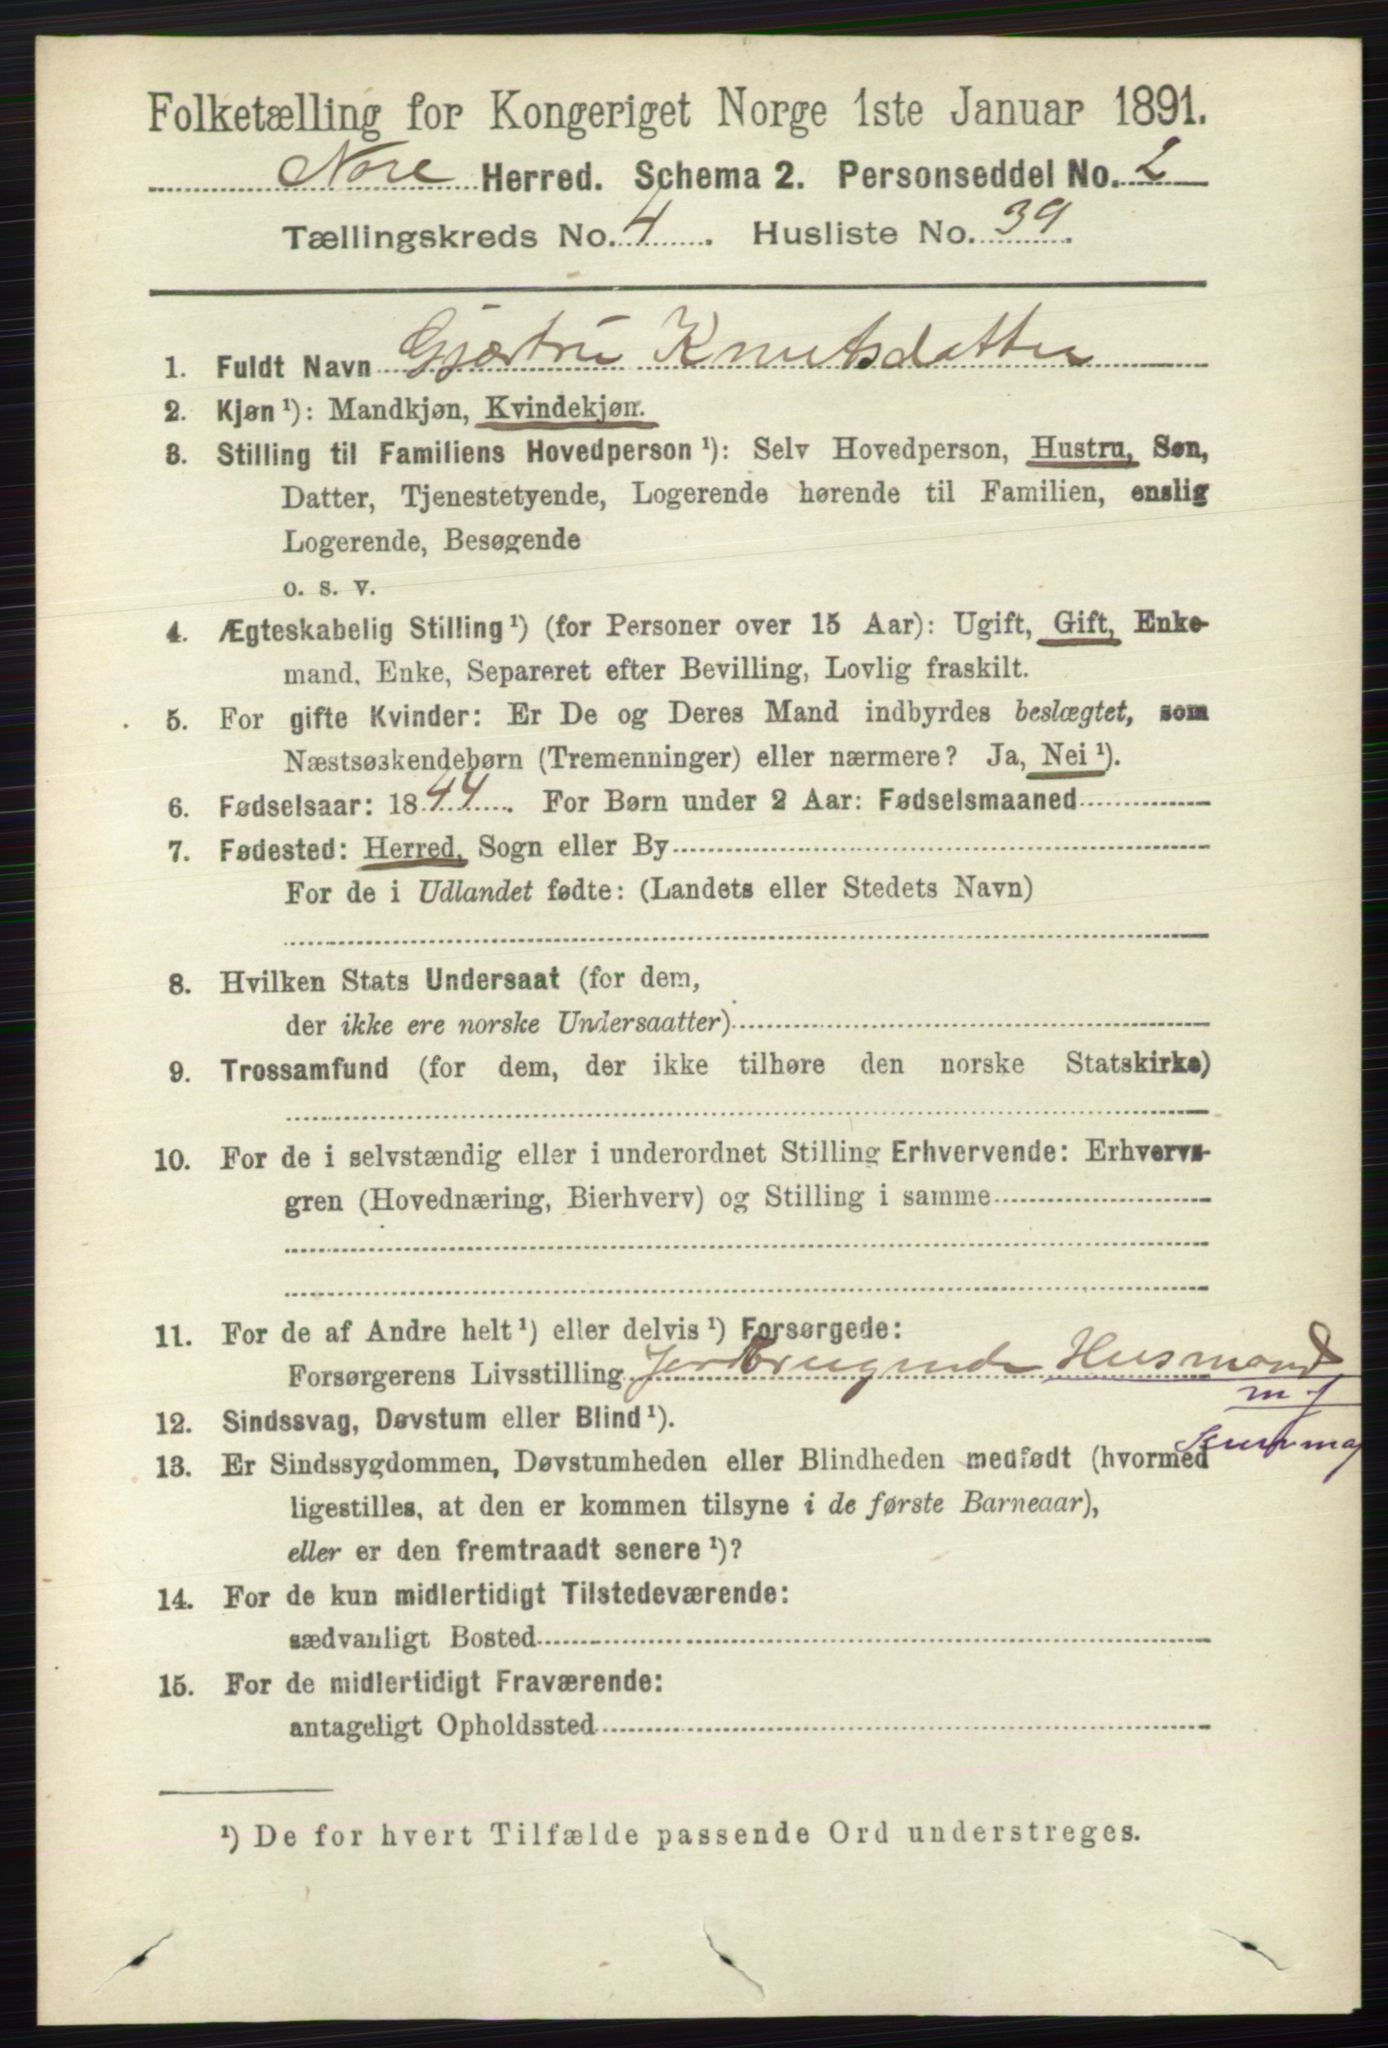 Folketælling for Kongeriget Norge 1ste Januar 1891.
Nore Herred. Schema 2. Personseddel No. 2
Tællingskreds No. 4. Husliste No. 39.
1. Fuldt Navn Gjertru Knutsdatter
2. Kjøn ¹): Mandkjøn, Kvindekjøn.
3. Stilling til Familiens Hovedperson ¹): Selv Hovedperson, Hustru, Søn,
Datter, Tjenestetyende, Logerende hørende til Familien, enslig
Logerende, Besøgende
o. s. v.
4. Ægteskabelig Stilling ¹) (for Personer over 15 Aar): Ugift, Gift, Enke-
mand, Enke, Separeret efter Bevilling, Lovlig fraskilt.
5. For gifte Kvinder: Er De og Deres Mand indbyrdes beslægtet, som
Næstsøskendebørn (Tremenninger) eller nærmere? Ja, Nei ¹).
6. Fødselsaar: 1844. For Børn under 2 Aar: Fødselsmaaned
7. Fødested: Herred, Sogn eller By
For de i Udlandet fødte: (Landets eller Stedets Navn)
8. Hvilken Stats Undersaat (for dem,
der ikke ere norske Undersaatter)
9. Trossamfund (for dem, der ikke tilhøre den norske Statskirke)
10. For de i selvstændig eller i underordnet Stilling Erhvervende: Erhvervs-
gren (Hovednæring, Bierhverv) og Stilling i samme
11. For de af Andre helt ¹) eller delvis ¹) Forsørgede:
Forsørgerens Livsstilling Jordbrugende Husmand
m. J
12. Sindssvag, Døvstum eller Blind ¹).
13. Er Sindssygdommen, Døvstumheden eller Blindheden medfødt (hvormed
ligestilles, at den er kommen tilsyne i de første Barneaar),
eller er den fremtraadt senere ¹)?
14. For de kun midlertidigt Tilstedeværende:
sædvanligt Bosted
15. For de midlertidigt Fraværende:
antageligt Opholdssted
¹) De for hvert Tilfælde passende Ord understreges.